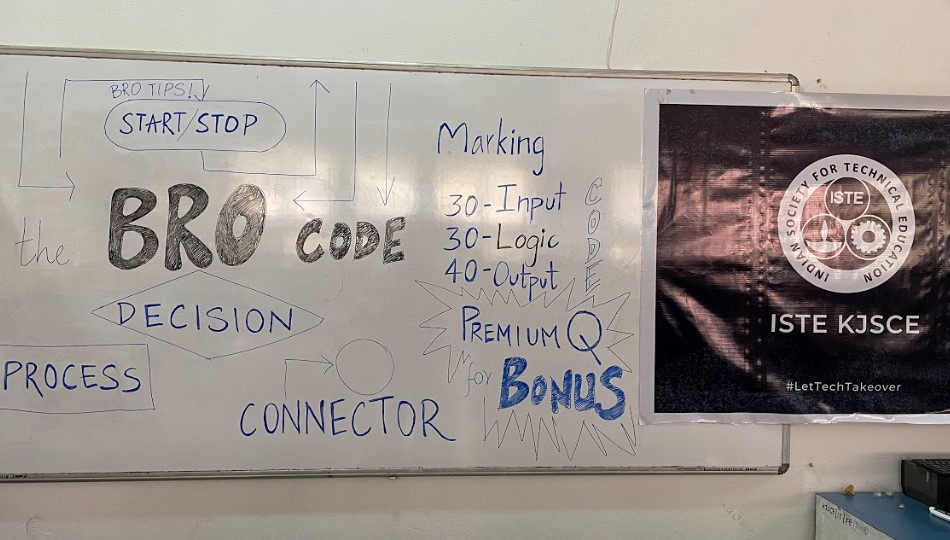 BRO TIPS!
START/STOP
the BRO CODE
DECISION
PROCESS
CONNECTOR
Marking
30-Input
30-Logic
40-Output
CODE
PREMIUM Q
for BONUS
INDIAN SOCIETY FOR TECHNICAL EDUCATION
ISTE
ISTE KJSCE
#LetTechTakeover